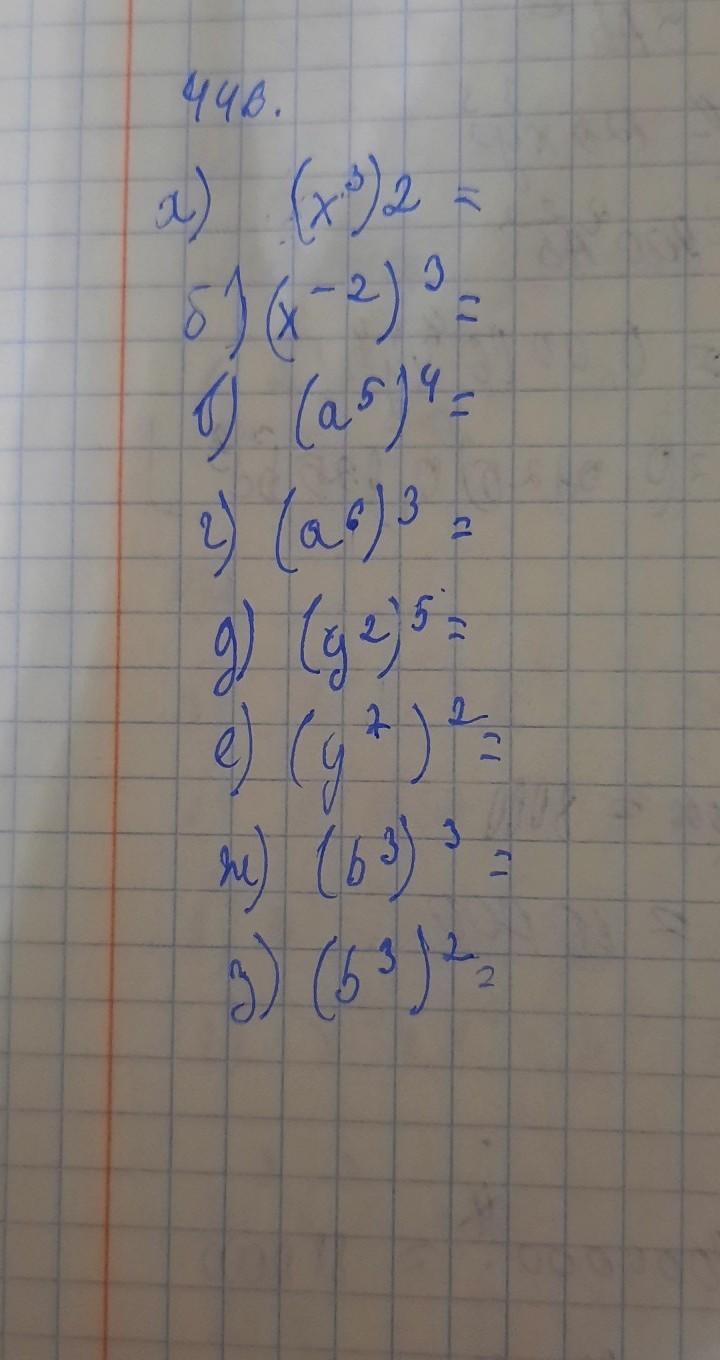 44в.
а) (x³)2 =
б) (x⁻²)³ =
в) (a⁵)⁴ =
г) (a⁶)³ =
д) (y²)⁵ =
е) (y⁷)² =
ж) (b³)³ =
з) (b³)² =